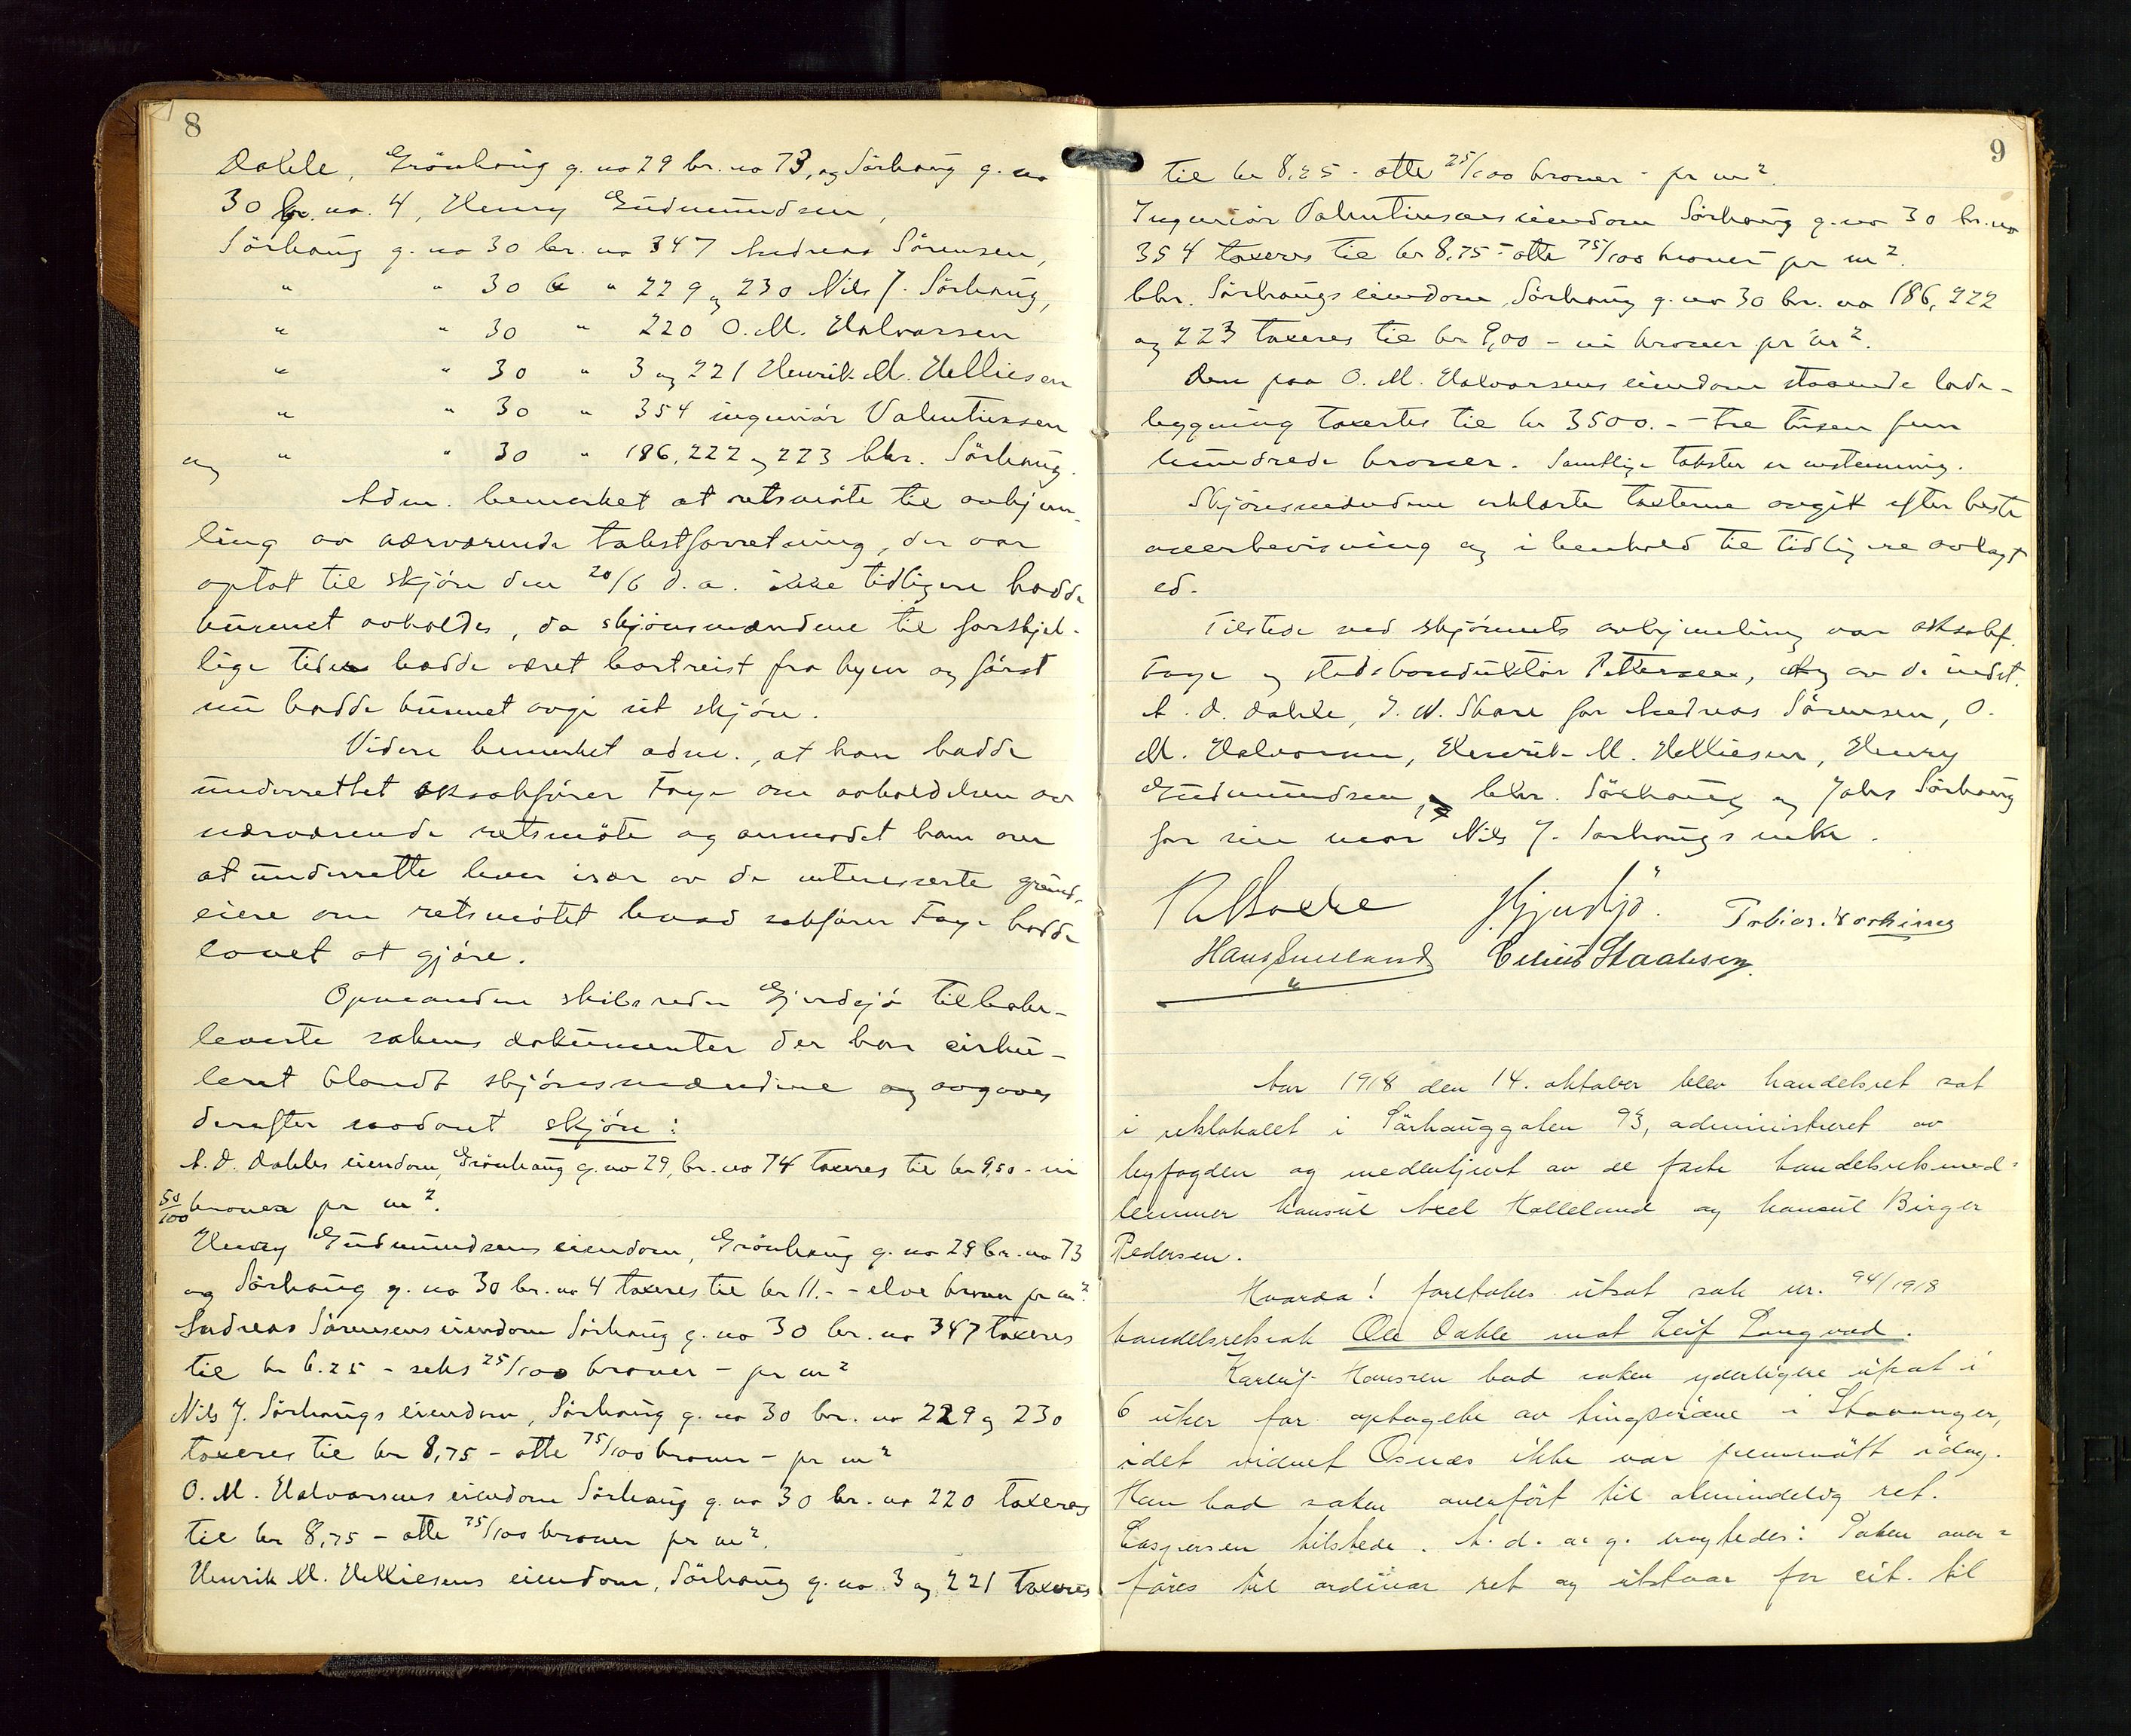 8
Dahle, Grönhaug g. no 29 br. no 73, og Sörhaug g. no
30 br. no. 4, Henry Gudmundsen,
Sörhaug g. no 30 br. no 347 Andreas Sörensen,
" " 30 " 229 og 230 Nils J. Sörhaug,
" " 30 " 220 O. M. Halvorsen
" " 30 " 3 og 221 Henrik M. Helliesen
" " 30 " 354 ingeniör Valentinsen
og " " 30 " 186, 222 og 223 Chr. Sörhaug.
Adm. bemerket at retsmöte til avhjem-
ling av nærværende takstforretning, der var
optat til skjön den 20/6 d. a. ikke tidligere hadde
kunnet avholdes, da skjönsmændene til forskjel-
lige tider hadde været bortreist fra byen og först
nu hadde kunnet avgi sit skjön.
Videre bemerket adm., at han hadde
underrettet oksakförer Faye om avholdelsen av
nærværende retsmöte og anmodet ham om
at underrette hver især av de interesserte grund-
eiere om retsmötet hvad sakförer Faye hadde
lovet at gjöre.
Opmanden skibsreder Gjerdsjö tilbake-
leverte sakens dokumenter der har cirku-
lert blandt skjönsmændene og avgaves
derefter saadant skjön:
A. D. Dahles eiendom, Grönhaug g. no 29, br. no 74 taxeres til kr 9,50 - ni
50/100 kroner pr m².
Henry Gudmundsens eiendom, Grönhaug g. no 29 br. no 73
og Sörhaug g. no 30 br. no 4 taxeres til kr 11.- - elve kroner pr m².
Andreas Sörensens eiendom Sörhaug g. no 30 br. no 347 taxeres
til kr 6.25 - seks 25/100 kroner - pr m²
Nils J. Sörhaugs eiendom, Sörhaug g. no 30 br. no 229 og 230
taxeres til kr 8,75 - otte 75/100 kroner - pr m²
O. M. Halvorsens eiendom Sörhaug g. no 30 br. no 220 taxeres
til kr 8,75 - otte 75/100 kroner pr m².
Henrik M. Helliesens eiendom, Sörhaug g. no 3 og 221 taxeres
9
til kr 8,25 - otte 25/100 kroner - pr m².
Ingeniör Valentinsens eiendom Sörhaug g. no 30 br. no
354 taxeres til kr 8,75 - otte 75/100 kroner - pr m².
Chr. Sörhaugs eiendom, Sörhaug g. no 30 br. no 186, 222
og 223 taxeres til kr 9,00 - ni kroner pr m².
Den paa O. M. Halvorsens eiendom staaende lade-
bygning taxertes til kr 3500.- - tre tusen fem
hundrede kroner. Samtlige takster er enstemmig.
Skjönsmændene erklærte taxterne avgit efter beste
overbevisning og i henhold til tidligere avlagt
ed.
Tilstede ved skjönnets avhjemling var oksakf.
Faye og stadskonduktör Pettersen, og av de indst.
A. D. Dahle, J. W. Skare for Andreas Sörensen, O.
M. Halvorsen, Henrik M. Helliesen, Henry
Gudmundsen, Chr. Sörhaug og Johs Sörhaug
for sin mor Nils J. Sörhaugs enke.
Gjerdsjö. Tobias
Hans Staalesen
Aar 1918 den 14. oktober blev handelsret sat
i retslokalet i Sörhauggaten 93, administreret av
byfogden og medbetjent av de faste handelsretsmed-
lemmer konsul Axel Halleland og konsul Birger
Pedersen.
Hvorda! foretokes utsat sak nr. 94/1918
handelsretssak Ole Dahle mot Leif Langvad.
Karluf Hansen bad saken yderligere utsat i
6 uker for optagelse av tingsvidne i Stavanger,
idet vidnet Osnæs ikke var fremmött idag.
Han bad saken overfört til almindelig ret.
Caspersen tilstede. A. d. a. g. avgtedes: Saken over-
föres til ordinær ret og utstaar for cit. til